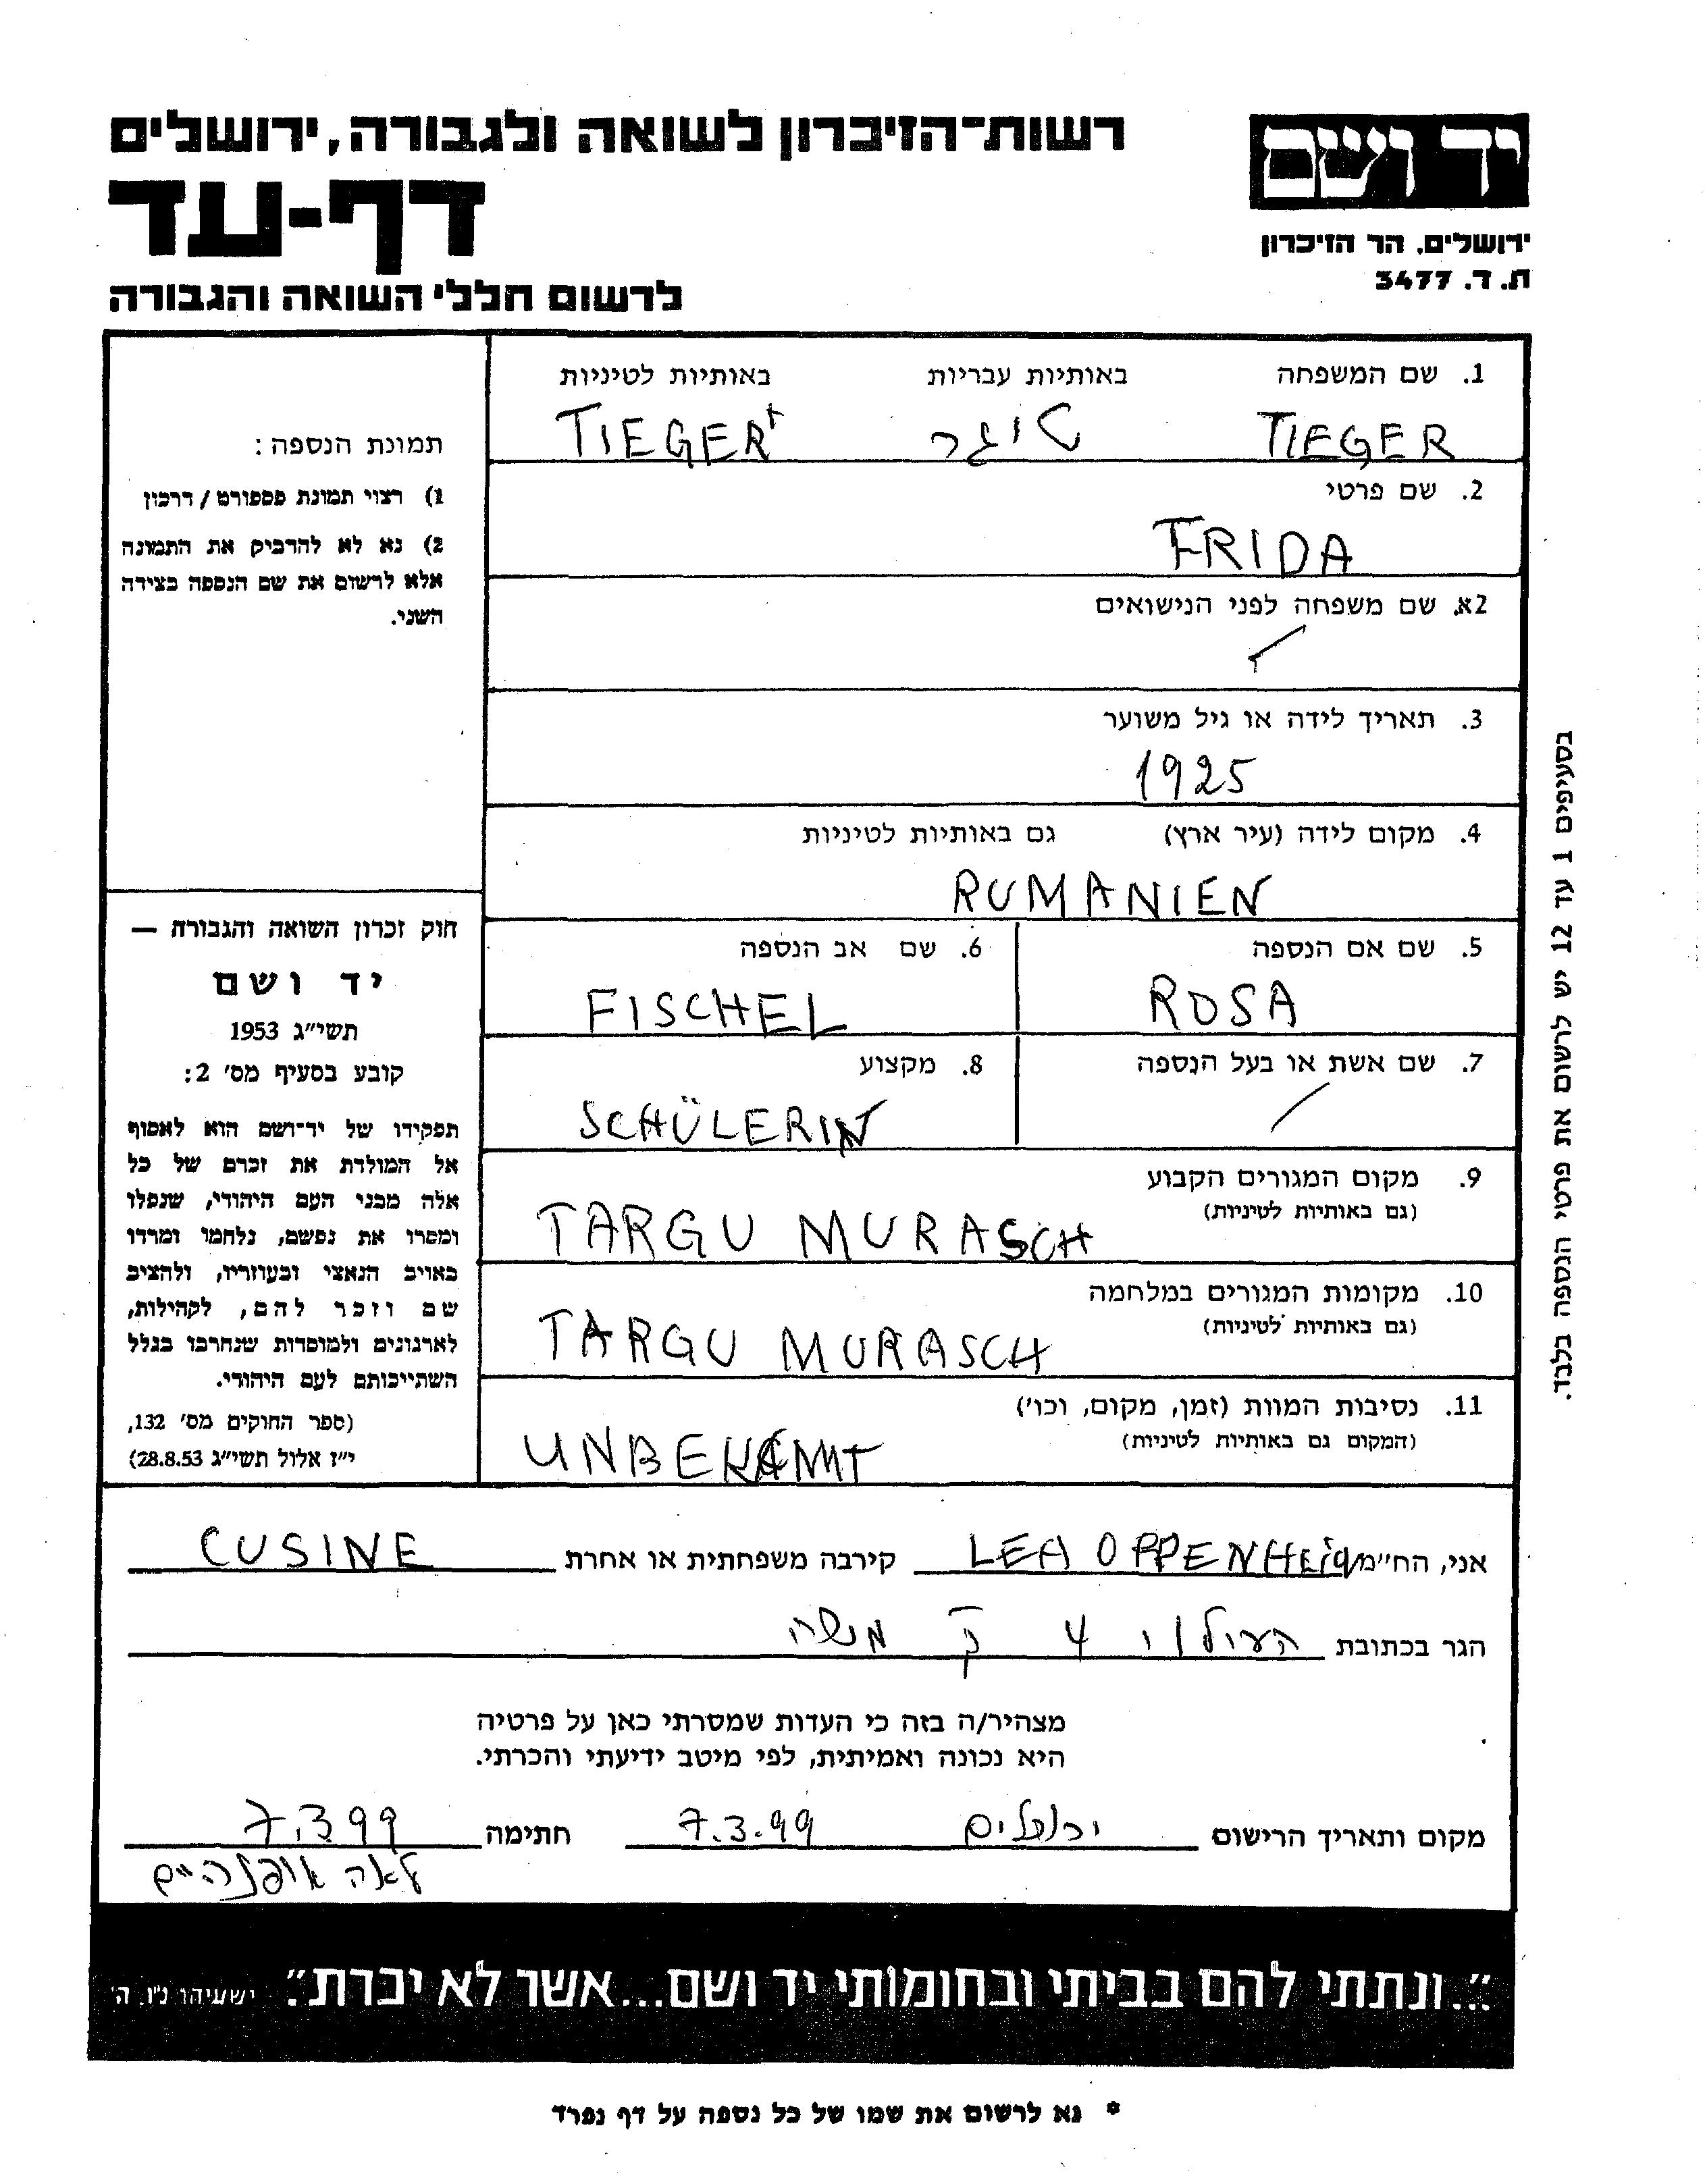 יד ושם
ירושלים, הר הזיכרון
ת. ד. 3477
רשות-הזיכרון לשואה ולגבורה, ירושלים
דף-עד
לרשום חללי השואה והגבורה
1. שם המשפחה באותיות עבריות באותיות לטיניות
TIEGER טיגר TIEGER
2. שם פרטי
FRIDA
2א. שם משפחה לפני הנישואים
3. תאריך לידה או גיל משוער
1925
4. מקום לידה (עיר ארץ) גם באותיות לטיניות
RUMANIEN
5. שם אם הנספה 6. שם אב הנספה
ROSA FISCHEL
7. שם אשת או בעל הנספה 8. מקצוע
SCHÜLERIN
9. מקום המגורים הקבוע
(גם באותיות לטיניות)
TARGU MURASCH
10. מקומות המגורים במלחמה
(גם באותיות לטיניות)
TARGU MURASCH
11. נסיבות המוות (זמן, מקום, וכו')
(המקום גם באותיות לטיניות)
UNBEKANNT
תמונת הנספה:
1) רצוי תמונת פספורט / דרכון
2) נא לא להדביק את התמונה
אלא לרשום את שם הנספה בצידה
השני.
חוק זכרון השואה והגבורה —
יד ושם
תשי"ג 1953
קובע בסעיף מס' 2:
תפקידו של יד-ושם הוא לאסוף
אל המולדת את זכרם של כל
אלה מבני העם היהודי, שנפלו
ומסרו את נפשם, נלחמו ומרדו
באויב הנאצי ובעוזריו, ולהציב
שם וזכר להם, לקהילות,
לארגונים ולמוסדות שנחרבו בגלל
השתייכותם לעם היהודי.
(ספר החוקים מס' 132,
י"ז אלול תשי"ג 28.8.53)
בסעיפים 1 עד 12 יש לרשום את פרטי הנספה בלבד.
אני, הח"מ LEA OPPENHEIM קירבה משפחתית או אחרת CUSINE
הגר בכתובת 4 ק משה
מצהיר/ה בזה כי העדות שמסרתי כאן על פרטיה
היא נכונה ואמיתית, לפי מיטב ידיעתי והכרתי.
מקום ותאריך הרישום ירושלים 7.3.99 חתימה 7.3.99
לאה אופנהיים
"...ונתתי להם בביתי ובחומותי יד ושם...אשר לא יכרת." ישעיהו נ"ו, ה'
* נא לרשום את שמו של כל נספה על דף נפרד